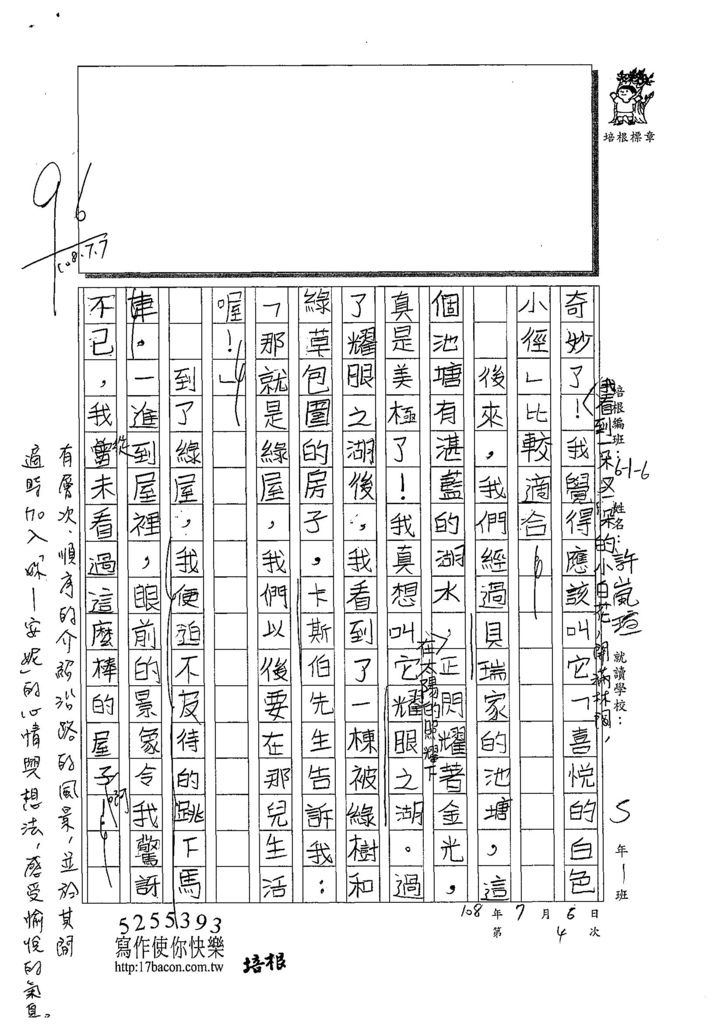 培根標章
培根編班：6-1-6 姓名：許嵐瑄 就讀學校： 5年 班
108年7月6日
第4次
96
108.7.7
奇妙了！我覺得應該叫它「喜悅的白色
我看到一朵又一朵的小白花，開滿林間，
小徑」比較適合。
後來，我們經過貝瑞家的池塘，這
個池塘有湛藍的湖水，正閃耀著金光，
在太陽的照耀下
真是美極了！我真想叫它耀眼之湖。過
了耀眼之湖後，我看到了一棟被綠樹和
綠草包圍的房子，卡斯伯先生告訴我：
「那就是綠屋，我們以後要在那兒生活
喔！」
到了綠屋，我便迫不及待的跳下馬
車。一進到屋裡，眼前的景象令我驚訝
不已，我從未看過這麼棒的屋子啊！
有層次、順序的介紹沿路的風景，並於其間
適時加入「妳—安妮」的心情與想法，感受愉悅的氣息。
5255393
寫作使你快樂
http:17bacon.com.tw
培根